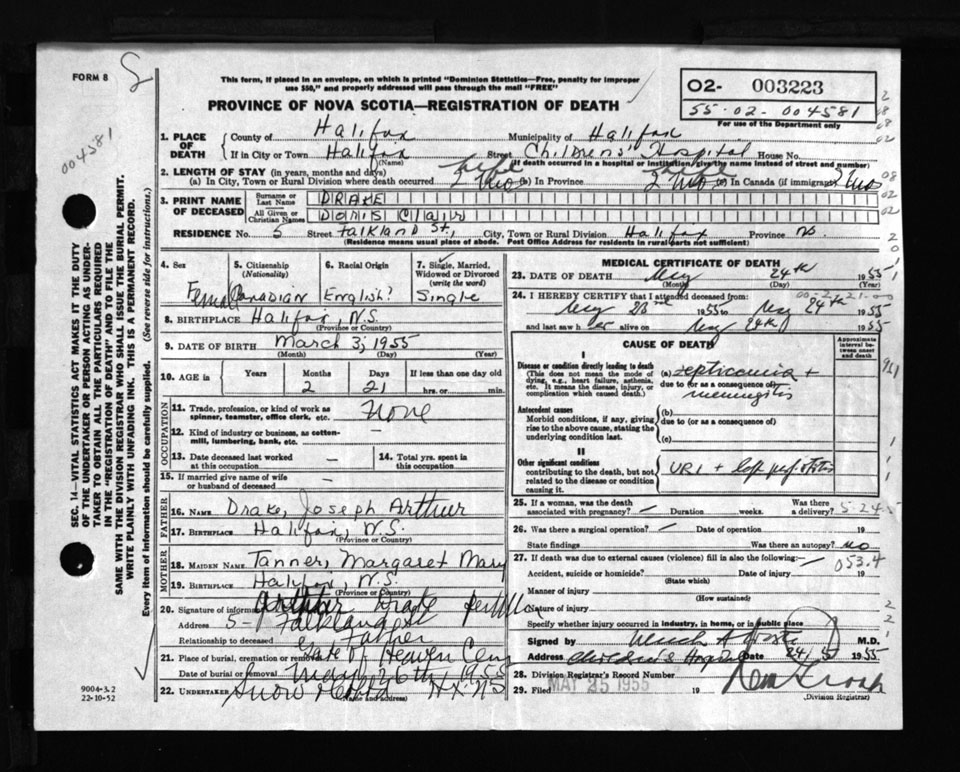 FORM 8
This form, if placed in an envelope, on which is printed "Dominion Statistics—Free, penalty for improper
use $50," and properly addressed will pass through the mail "FREE"
PROVINCE OF NOVA SCOTIA—REGISTRATION OF DEATH
O2- 003223
55-02-004581
For use of the Department only
004581
SEC. 14—VITAL STATISTICS ACT MAKES IT THE DUTY
OF THE UNDERTAKER OR PERSON ACTING AS UNDER-
TAKER TO OBTAIN ALL THE PARTICULARS REQUIRED
IN THE "REGISTRATION OF DEATH" AND TO FILE THE
SAME WITH THE DIVISION REGISTRAR WHO SHALL ISSUE THE BURIAL PERMIT.
WRITE PLAINLY WITH UNFADING INK. THIS IS A PERMANENT RECORD.
Every item of information should be carefully supplied. (See reverse side for instructions.)
1. PLACE OF DEATH County of Halifax Municipality of Halifax
If in City or Town Halifax Street Children's Hospital House No.
(Name) (If death occurred in a hospital or institution, give the name instead of street and number)
2. LENGTH OF STAY (in years, months and days)
(a) In City, Town or Rural Division where death occurred 2 mos (b) In Province 2 mos (c) In Canada (if immigrant) 2 mos
3. PRINT NAME OF DECEASED Surname or Last Name DRAKE
All Given or Christian Names Doris Clair
RESIDENCE No. 5 Street Falkland St., City, Town or Rural Division Halifax Province N.S.
(Residence means usual place of abode. Post Office Address for residents in rural parts not sufficient)
4. Sex Female
5. Citizenship (Nationality) Canadian
6. Racial Origin English?
7. Single, Married, Widowed or Divorced (write the word) Single
8. BIRTHPLACE Halifax, N.S.
(Province or Country)
9. DATE OF BIRTH March 3, 1955
(Month) (Day) (Year)
10. AGE in Years Months 2 Days 21 If less than one day old hrs. or min.
OCCUPATION
11. Trade, profession, or kind of work as spinner, teamster, office clerk, etc. None
12. Kind of industry or business, as cotton-mill, lumbering, bank, etc. —
13. Date deceased last worked at this occupation —
14. Total yrs. spent in this occupation —
15. If married give name of wife or husband of deceased —
FATHER
16. Name Drake, Joseph Arthur
17. Birthplace Halifax, N.S.
(Province or Country)
MOTHER
18. MAIDEN NAME Tanner, Margaret Mary
19. BIRTHPLACE Halifax, N.S.
(Province or Country)
20. Signature of informant Arthur Drake
Address 5- Falkland St
Relationship to deceased Father
21. Place of burial, cremation or removal Gate of Heaven Cem
Date of burial or removal May 26th 1955
22. UNDERTAKER Snow & Co Ltd Hx. N.S.
(Name and address)
9004-3.2
22-10-52
MEDICAL CERTIFICATE OF DEATH
23. DATE OF DEATH May 24th 1955
(Month) (Day)
24. I HEREBY CERTIFY that I attended deceased from:
May 23rd 1955 to May 24th 1955
and last saw her alive on May 24th 1955
CAUSE OF DEATH
Approximate interval between onset and death
I
Disease or condition directly leading to death
(This does not mean the mode of dying, e.g., heart failure, asthenia, etc. It means the disease, injury, or complication which caused death.)
(a) septicemia +
due to (or as a consequence of)
meningitis
Antecedent causes
Morbid conditions, if any, giving rise to the above cause, stating the underlying condition last.
(b)
due to (or as a consequence of)
(c)
II
Other significant conditions
contributing to the death, but not related to the disease or condition causing it.
URI +
25. If a woman, was the death associated with pregnancy? — Duration weeks. Was there a delivery?
5-24-5
26. Was there a surgical operation? — Date of operation 19
State findings Was there an autopsy? no
27. If death was due to external causes (violence) fill in also the following:—
053.4
Accident, suicide or homicide? Date of injury 19
(State which)
Manner of injury
(How sustained)
Nature of injury
Specify whether injury occurred in industry, in home, or in public place
Signed by M.D.
Address Children's Hospital Date 24/5 1955
28. Division Registrar's Record Number
29. Filed MAY 25 1955 19
(Division Registrar)